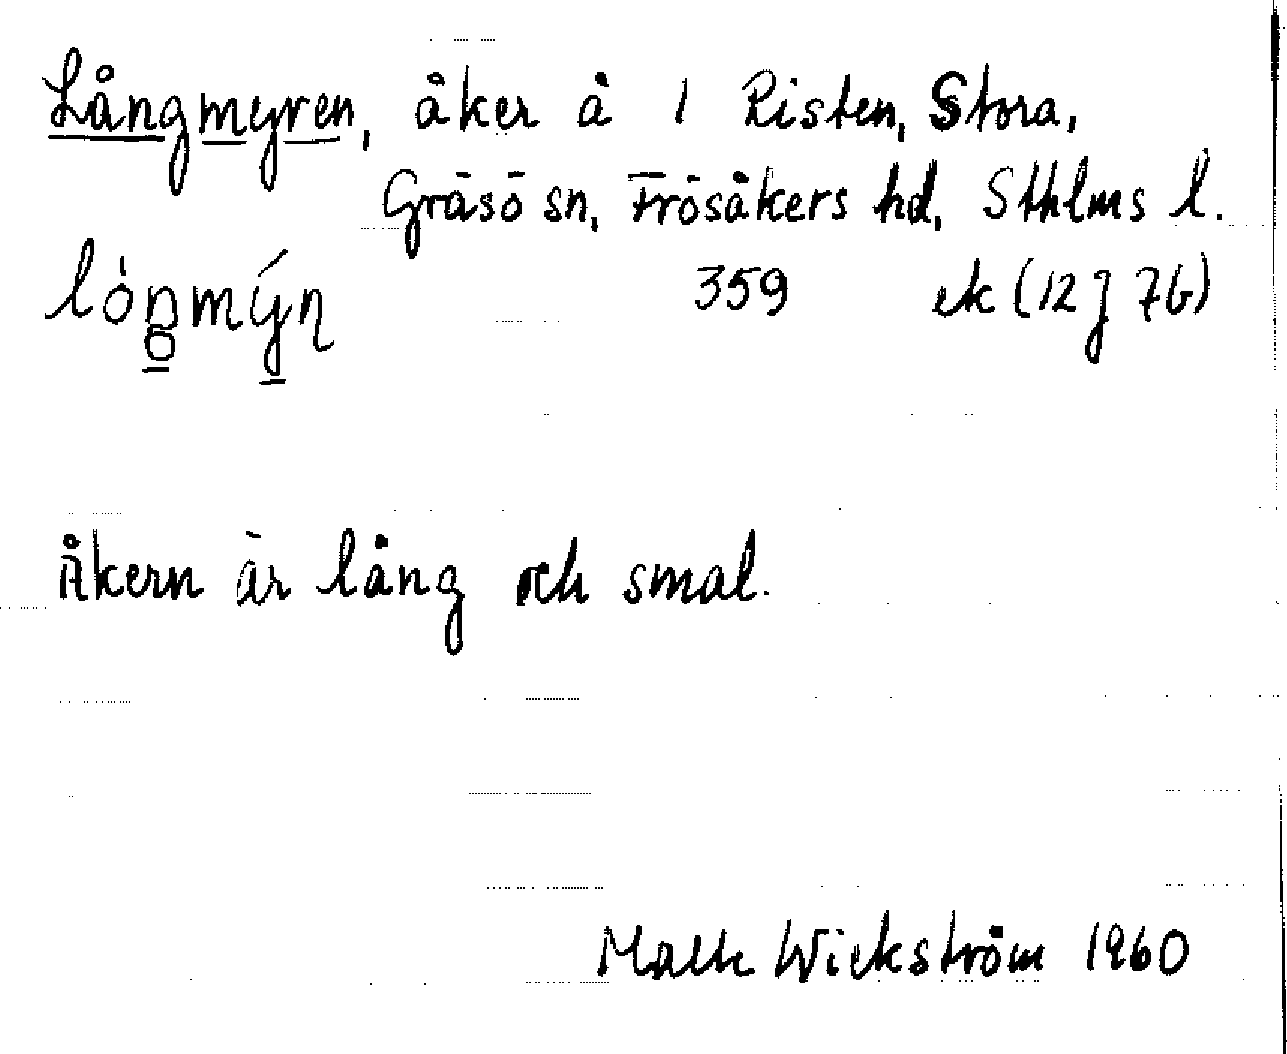 Långmyren, åker å 1 Risten, Stora,
Gräsö sn, Frösåkers hd, Sthlms l.
359 ek (12 J 7b)
Åkern är lång och smal.
Wickström 1960